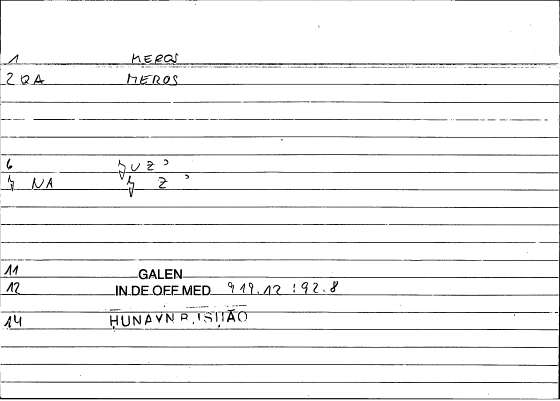 1 MEROS
2 QA MEROS
6 ɮUZʾ
ɮ NA ɮ Z ʾ
11 GALEN
12 IN DE OFF MED 919.12 : 92.8
14 ḤUNAYN B. ISḤĀQ